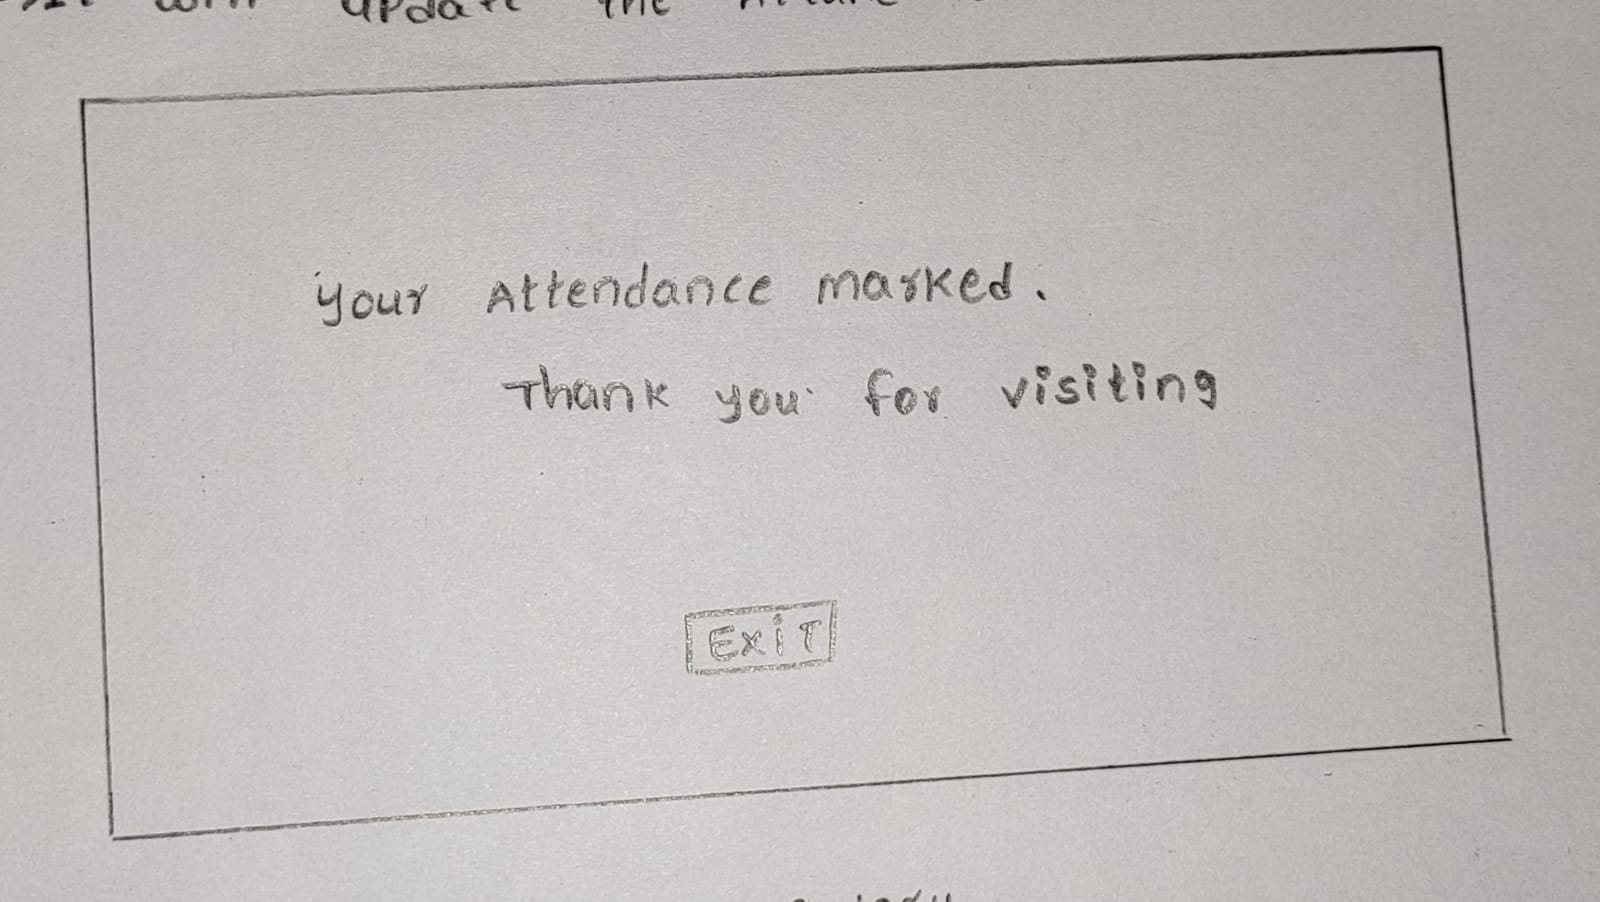 update the
your Attendance marked.
Thank you for visiting
Exit